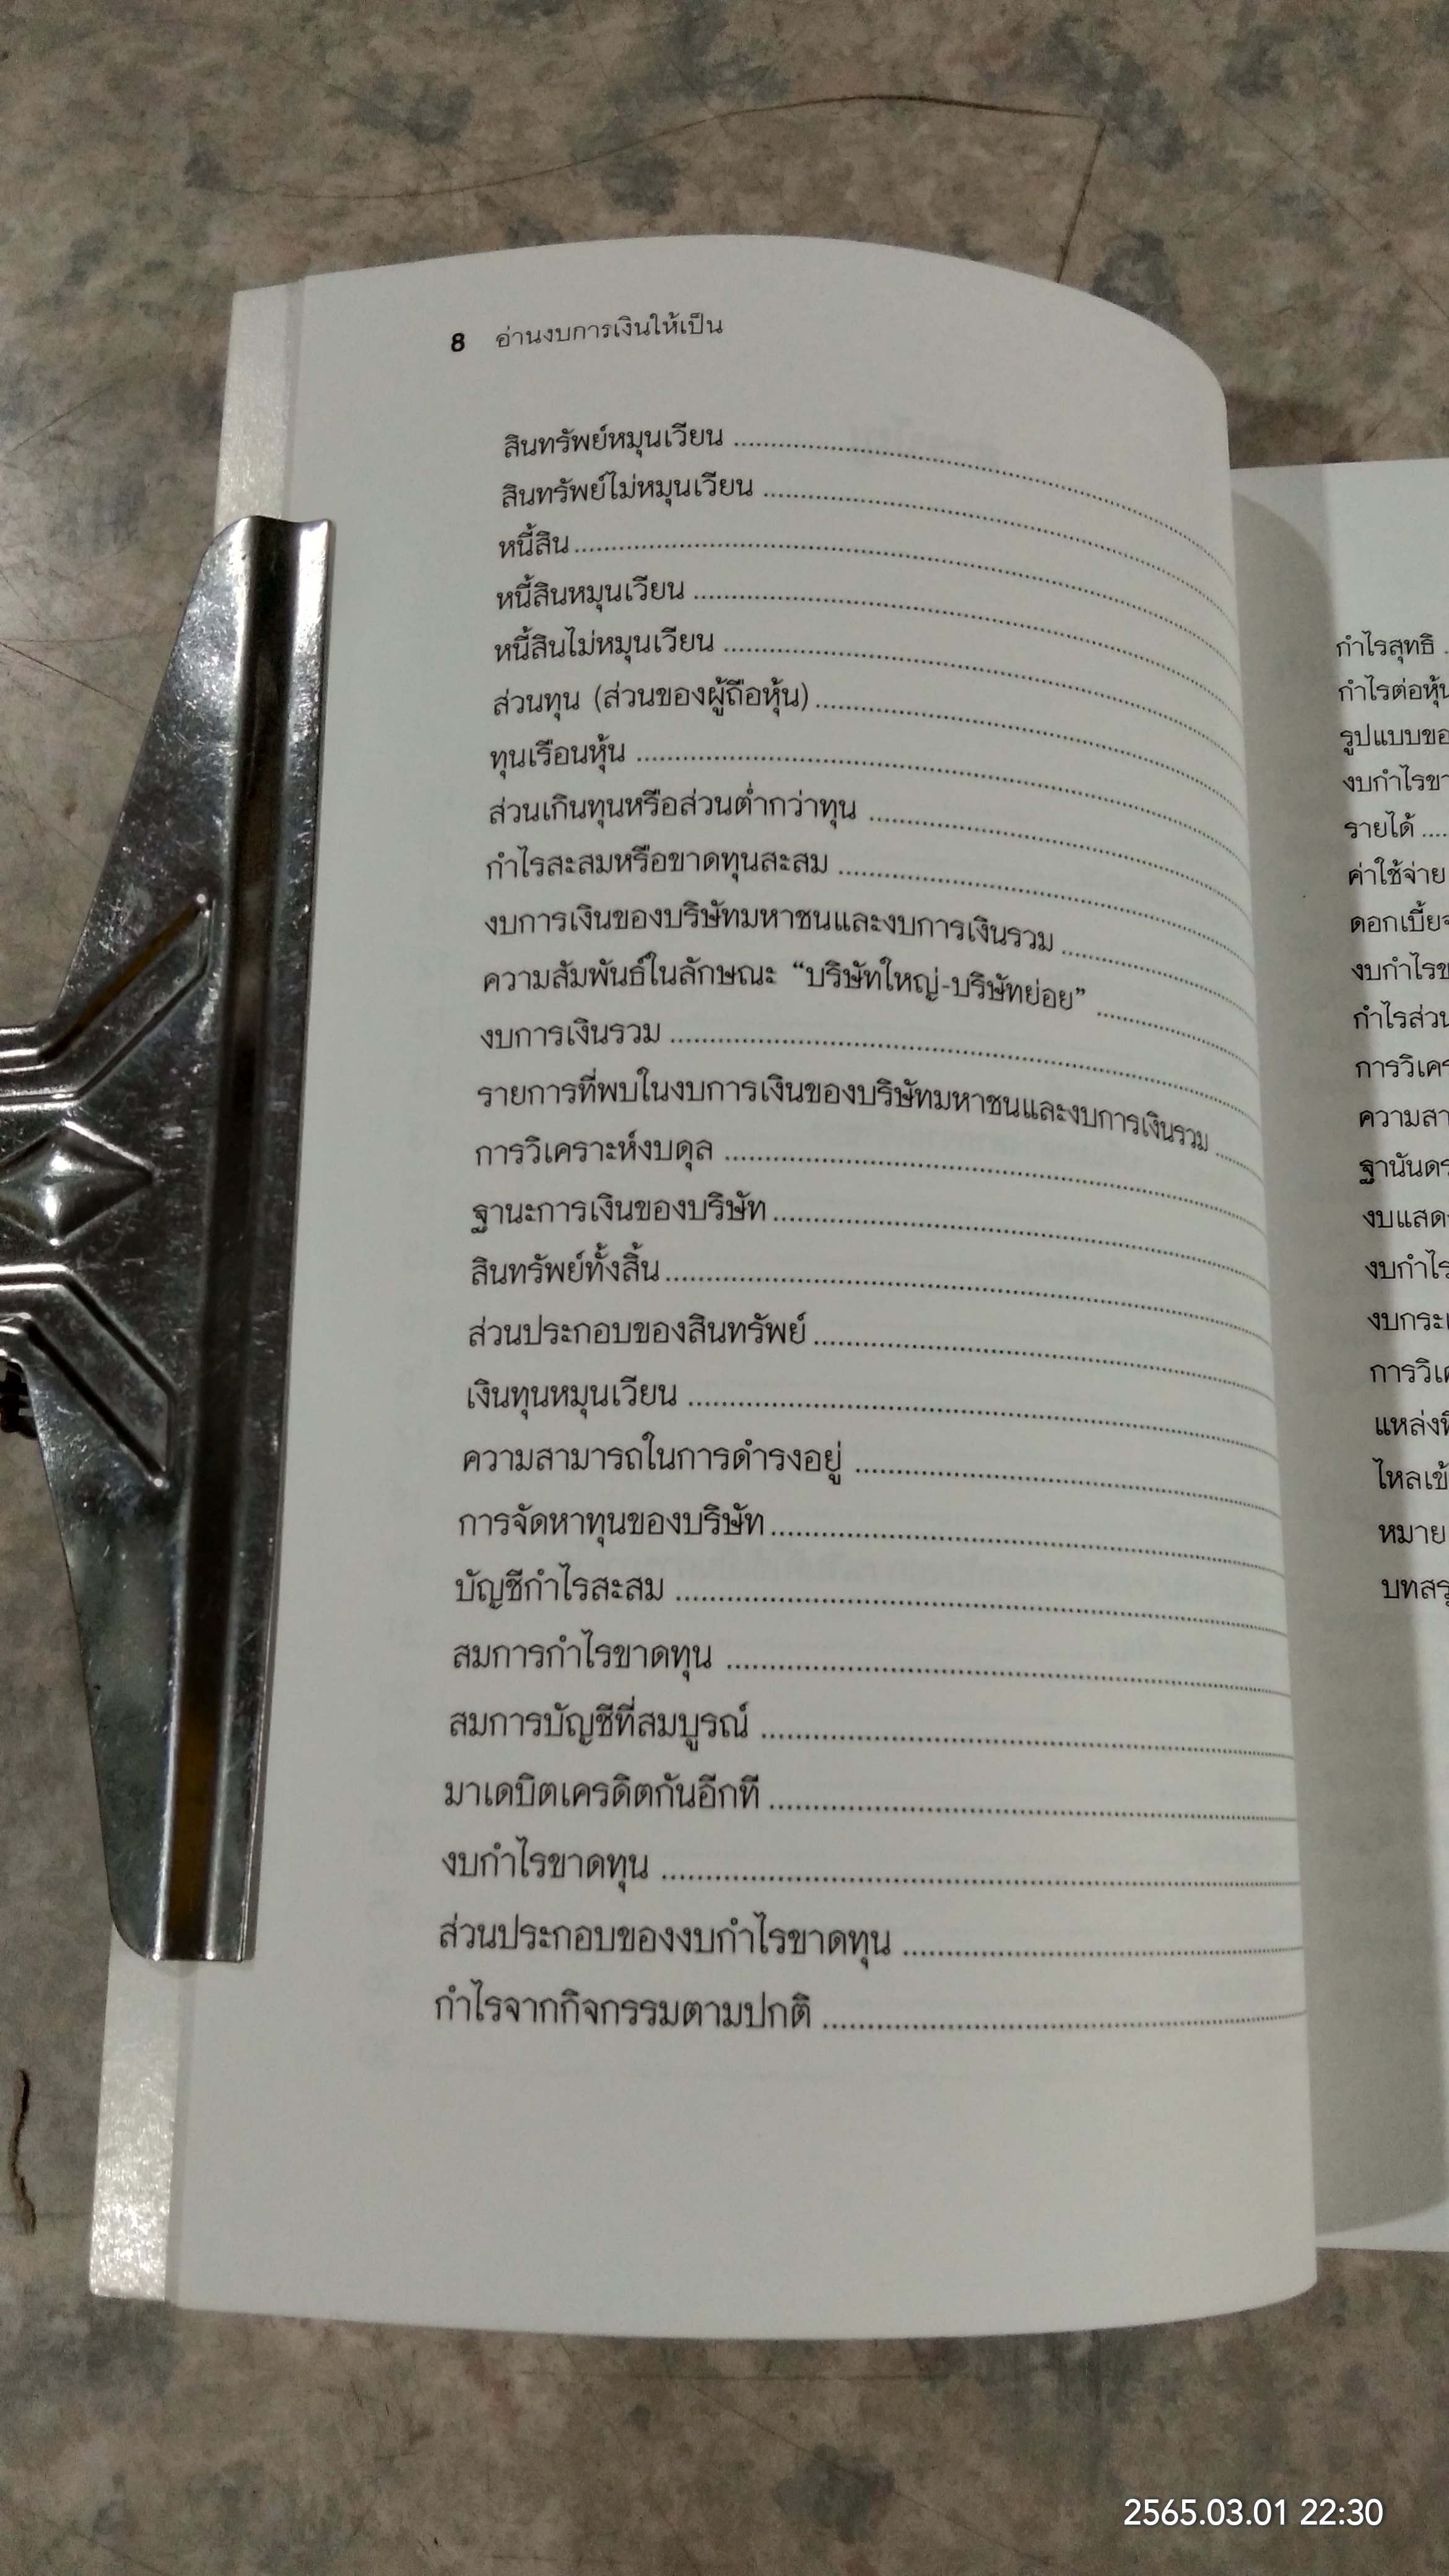 8 อ่านงบการเงินให้เป็น
สินทรัพย์หมุนเวียน
สินทรัพย์ไม่หมุนเวียน
หนี้สิน
หนี้สินหมุนเวียน
หนี้สินไม่หมุนเวียน
ส่วนทุน (ส่วนของผู้ถือหุ้น)
ทุนเรือนหุ้น
ส่วนเกินทุนหรือส่วนต่ำกว่าทุน
กำไรสะสมหรือขาดทุนสะสม
งบการเงินของบริษัทมหาชนและงบการเงินรวม
ความสัมพันธ์ในลักษณะ “บริษัทใหญ่-บริษัทย่อย”
งบการเงินรวม
รายการที่พบในงบการเงินของบริษัทมหาชนและงบการเงินรวม
การวิเคราะห์งบดุล
ฐานะการเงินของบริษัท
สินทรัพย์ทั้งสิ้น
ส่วนประกอบของสินทรัพย์
เงินทุนหมุนเวียน
ความสามารถในการดำรงอยู่
การจัดหาทุนของบริษัท
บัญชีกำไรสะสม
สมการกำไรขาดทุน
สมการบัญชีที่สมบูรณ์
มาเดบิตเครดิตกันอีกที
งบกำไรขาดทุน
ส่วนประกอบของงบกำไรขาดทุน
กำไรจากกิจกรรมตามปกติ
กำไรสุทธิ
กำไรต่อหุ้น
รายได้
ค่าใช้จ่าย
2565.03.01 22:30